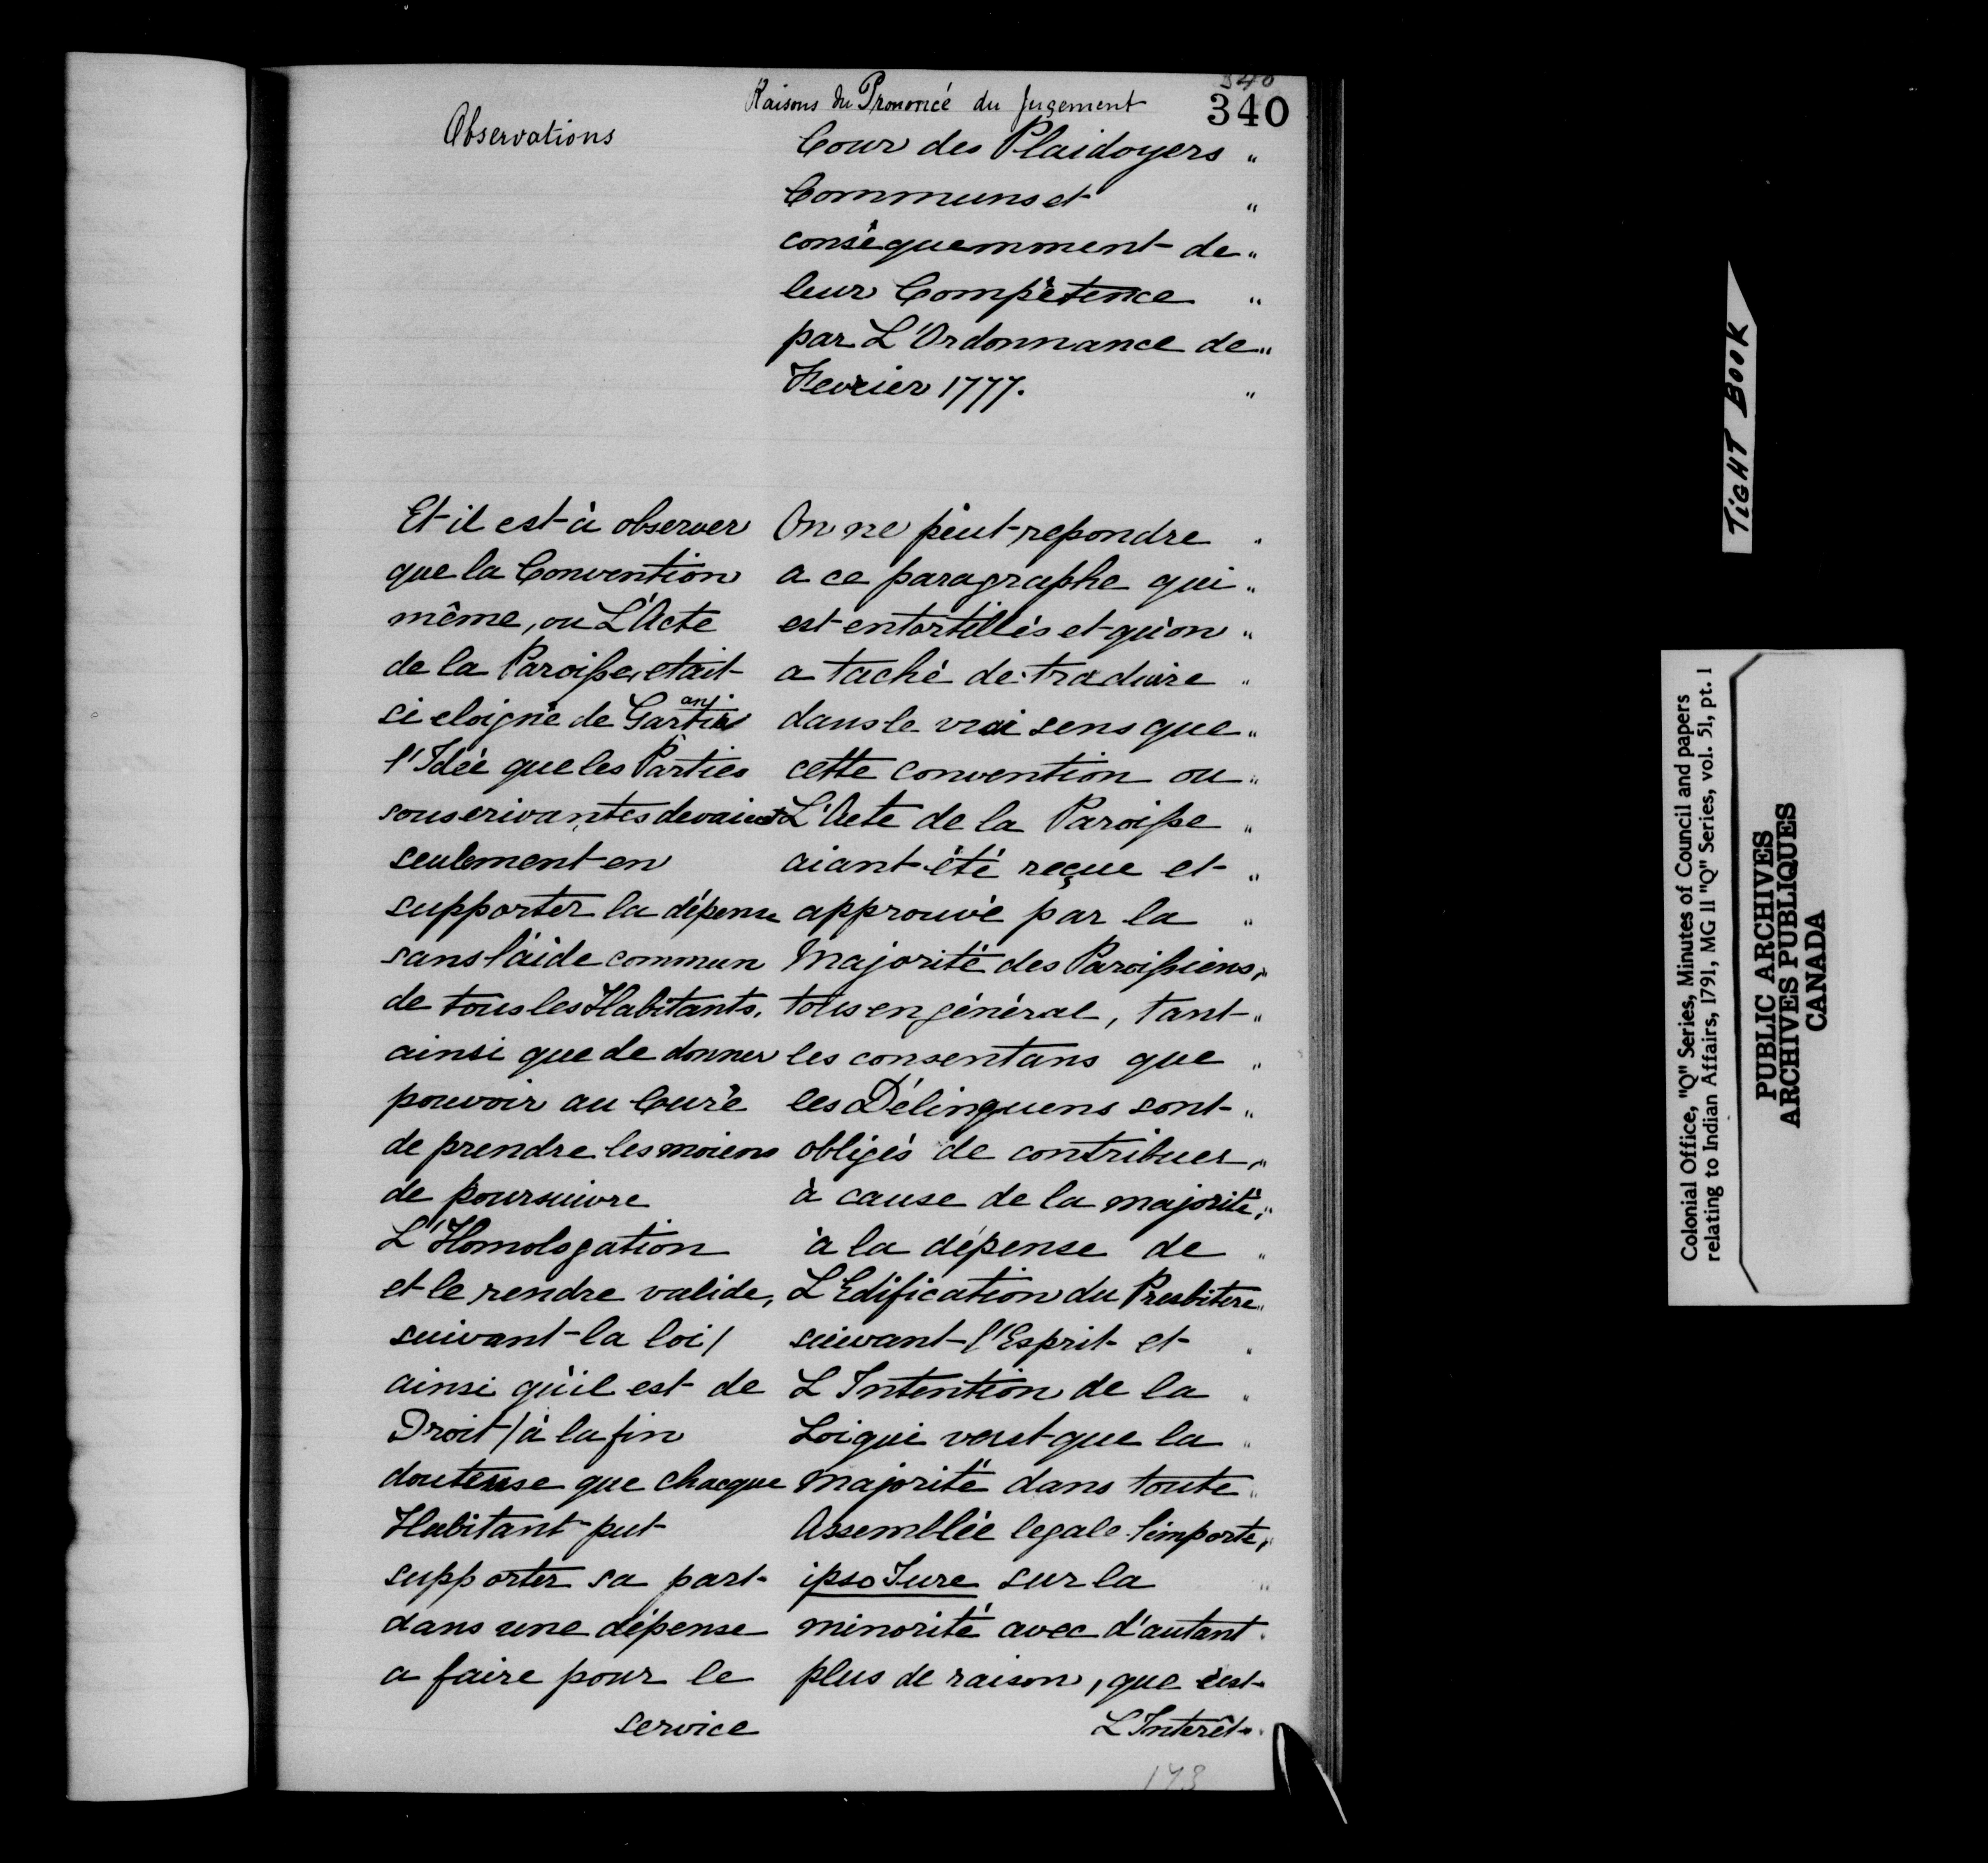 340
Raisons du Prononcé du Jugement
340
Observations
Cour des Plaidoyers "
Communs et "
conséquemment de "
leur Compétence "
par L'Ordonnance de "
Fevrier 1777. "
Et il est à observer
que la Convention
même, ou L'Acte
de la Paroisse, etait
si eloigné de
l'Idée que les Parties
souscrivantes devaient
seulement en
supporter la dépense
sans l'aide commun
de tous les Habitants,
ainsi que de donner
pouvoir au Curé
de prendre les moiens
de poursuivre
L'Homologation
et le rendre valide,
suivant la loi/
ainsi qu'il est de
Droit/à la fin
douteuse que chacque
Habitant put
supporter sa part
dans une dépense
a faire pour le
service
On ne peut repondre "
a ce paragraphe qui "
est entortillés et qu'on "
a taché de traduire "
dans le vrai sens que "
cette convention ou "
L'Acte de la Paroisse "
aiant été reçue et "
approuvé par la "
Majorité des Paroissiens, "
tous en général, tant "
les consentans que "
les Délinquens sont "
obligés de contribuer, "
à cause de la majorité, "
à la dépense de "
L'Edification du Presbitere "
suivant l'Esprit et "
L'Intention de la "
Loi qui veut que la "
majorité dans toute "
Assemblée legale l'emporte, "
ipso Jure sur la "
minorité avec d'autant "
plus de raison, que c'est
L'Interêt "
173
TIGHT BOOK
Colonial Office, "Q" Series, Minutes of Council and papers
relating to Indian Affairs, 1791, MG 11 "Q" Series, vol. 51, pt. 1
PUBLIC ARCHIVES
ARCHIVES PUBLIQUES
CANADA